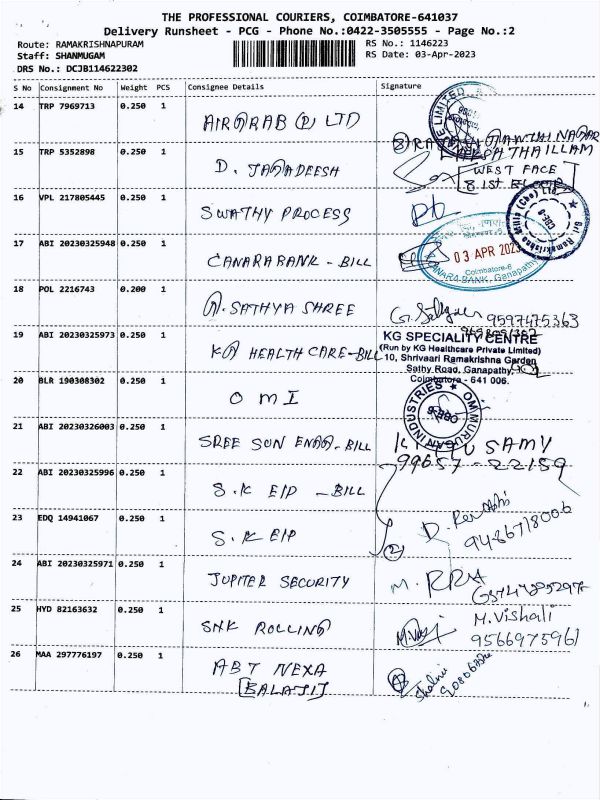 THE PROFESSIONAL COURIERS, COIMBATORE-641037
Delivery Runsheet - PCG - Phone No.:0422-3505555 - Page No.:2
Route: RAMAKRISHNAPURAM RS No.: 1146223
Staff: SHANMUGAM RS Date: 03-Apr-2023
DRS No.: DCJB114622302
S No Consignment No Weight PCS Consignee Details Signature
14 TRP 7969713 0.250 1
AIRARAB (P) LTD
15 TRP 5352898 0.250 1
D. JAGADEESH
WEST FACE
16 VPL 217805445 0.250 1
SWATHY PROCESS
17 ABI 20230325948 0.250 1
CANARA BANK - BILL
03 APR 2023
Coimbatore-6
CANARA BANK, Ganapathy
18 POL 2216743 0.200 1
SATHYA SHREE
9597475363
19 ABI 20230325973 0.250 1
KG HEALTH CARE-BILL
KG SPECIALITY CENTRE
(Run by KG Healthcare Private Limited)
10, Shrivaari Ramakrishna Garden
Sathy Road, Ganapathy,
Coimbatore - 641 006.
20 BLR 190308302 0.250 1
OMI
OM MURUGAN INDUSTRIES
CBE-6
21 ABI 20230326003 0.250 1
SREE SUN ENGG-BILL
SAMY
99657-22159
22 ABI 20230325996 0.250 1
S.K EIP - BILL
23 EDQ 14941067 0.250 1
S.K EIP
2
D. Revathi
9486718006
24 ABI 20230325971 0.250 1
JUPITER SECURITY
25 HYD 82163632 0.250 1
SNK ROLLING
M.Vishali
9566975961
26 MAA 297776197 0.250 1
ABT NEXA
[BALAJI]
Shalini